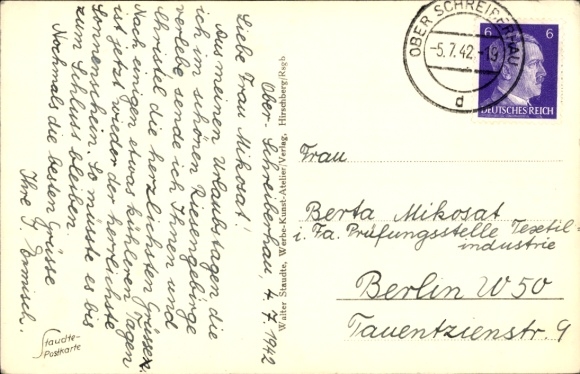 Ober-Schreiberhau, 4.7.1942
Liebe Frau Mikosat!
Aus meinen Urlaubstagen die
ich im schönen Riesengebirge
verlebe sende ich Ihnen und
Christel die herzlichsten Grüsse.
Nach einigen etwas kühleren Tagen
ist jetzt wieder der herrlichste
Sonnenschein. So müsste es bis
zum Schluss bleiben.
Nochmals die besten Grüsse
Ihre
Staudte-
Postkarte
Walter Staudte, Werbe-Kunst-Atelier/Verlag, Hirschberg/Rsgb
OBER SCHREIBERHAU
-5.7.42.-19
d
6 6
DEUTSCHES REICH
Frau
Berta Mikosat
i. Fa. Prüfungsstelle Textil-
industrie
Berlin W50
Tauentzienstr. 9